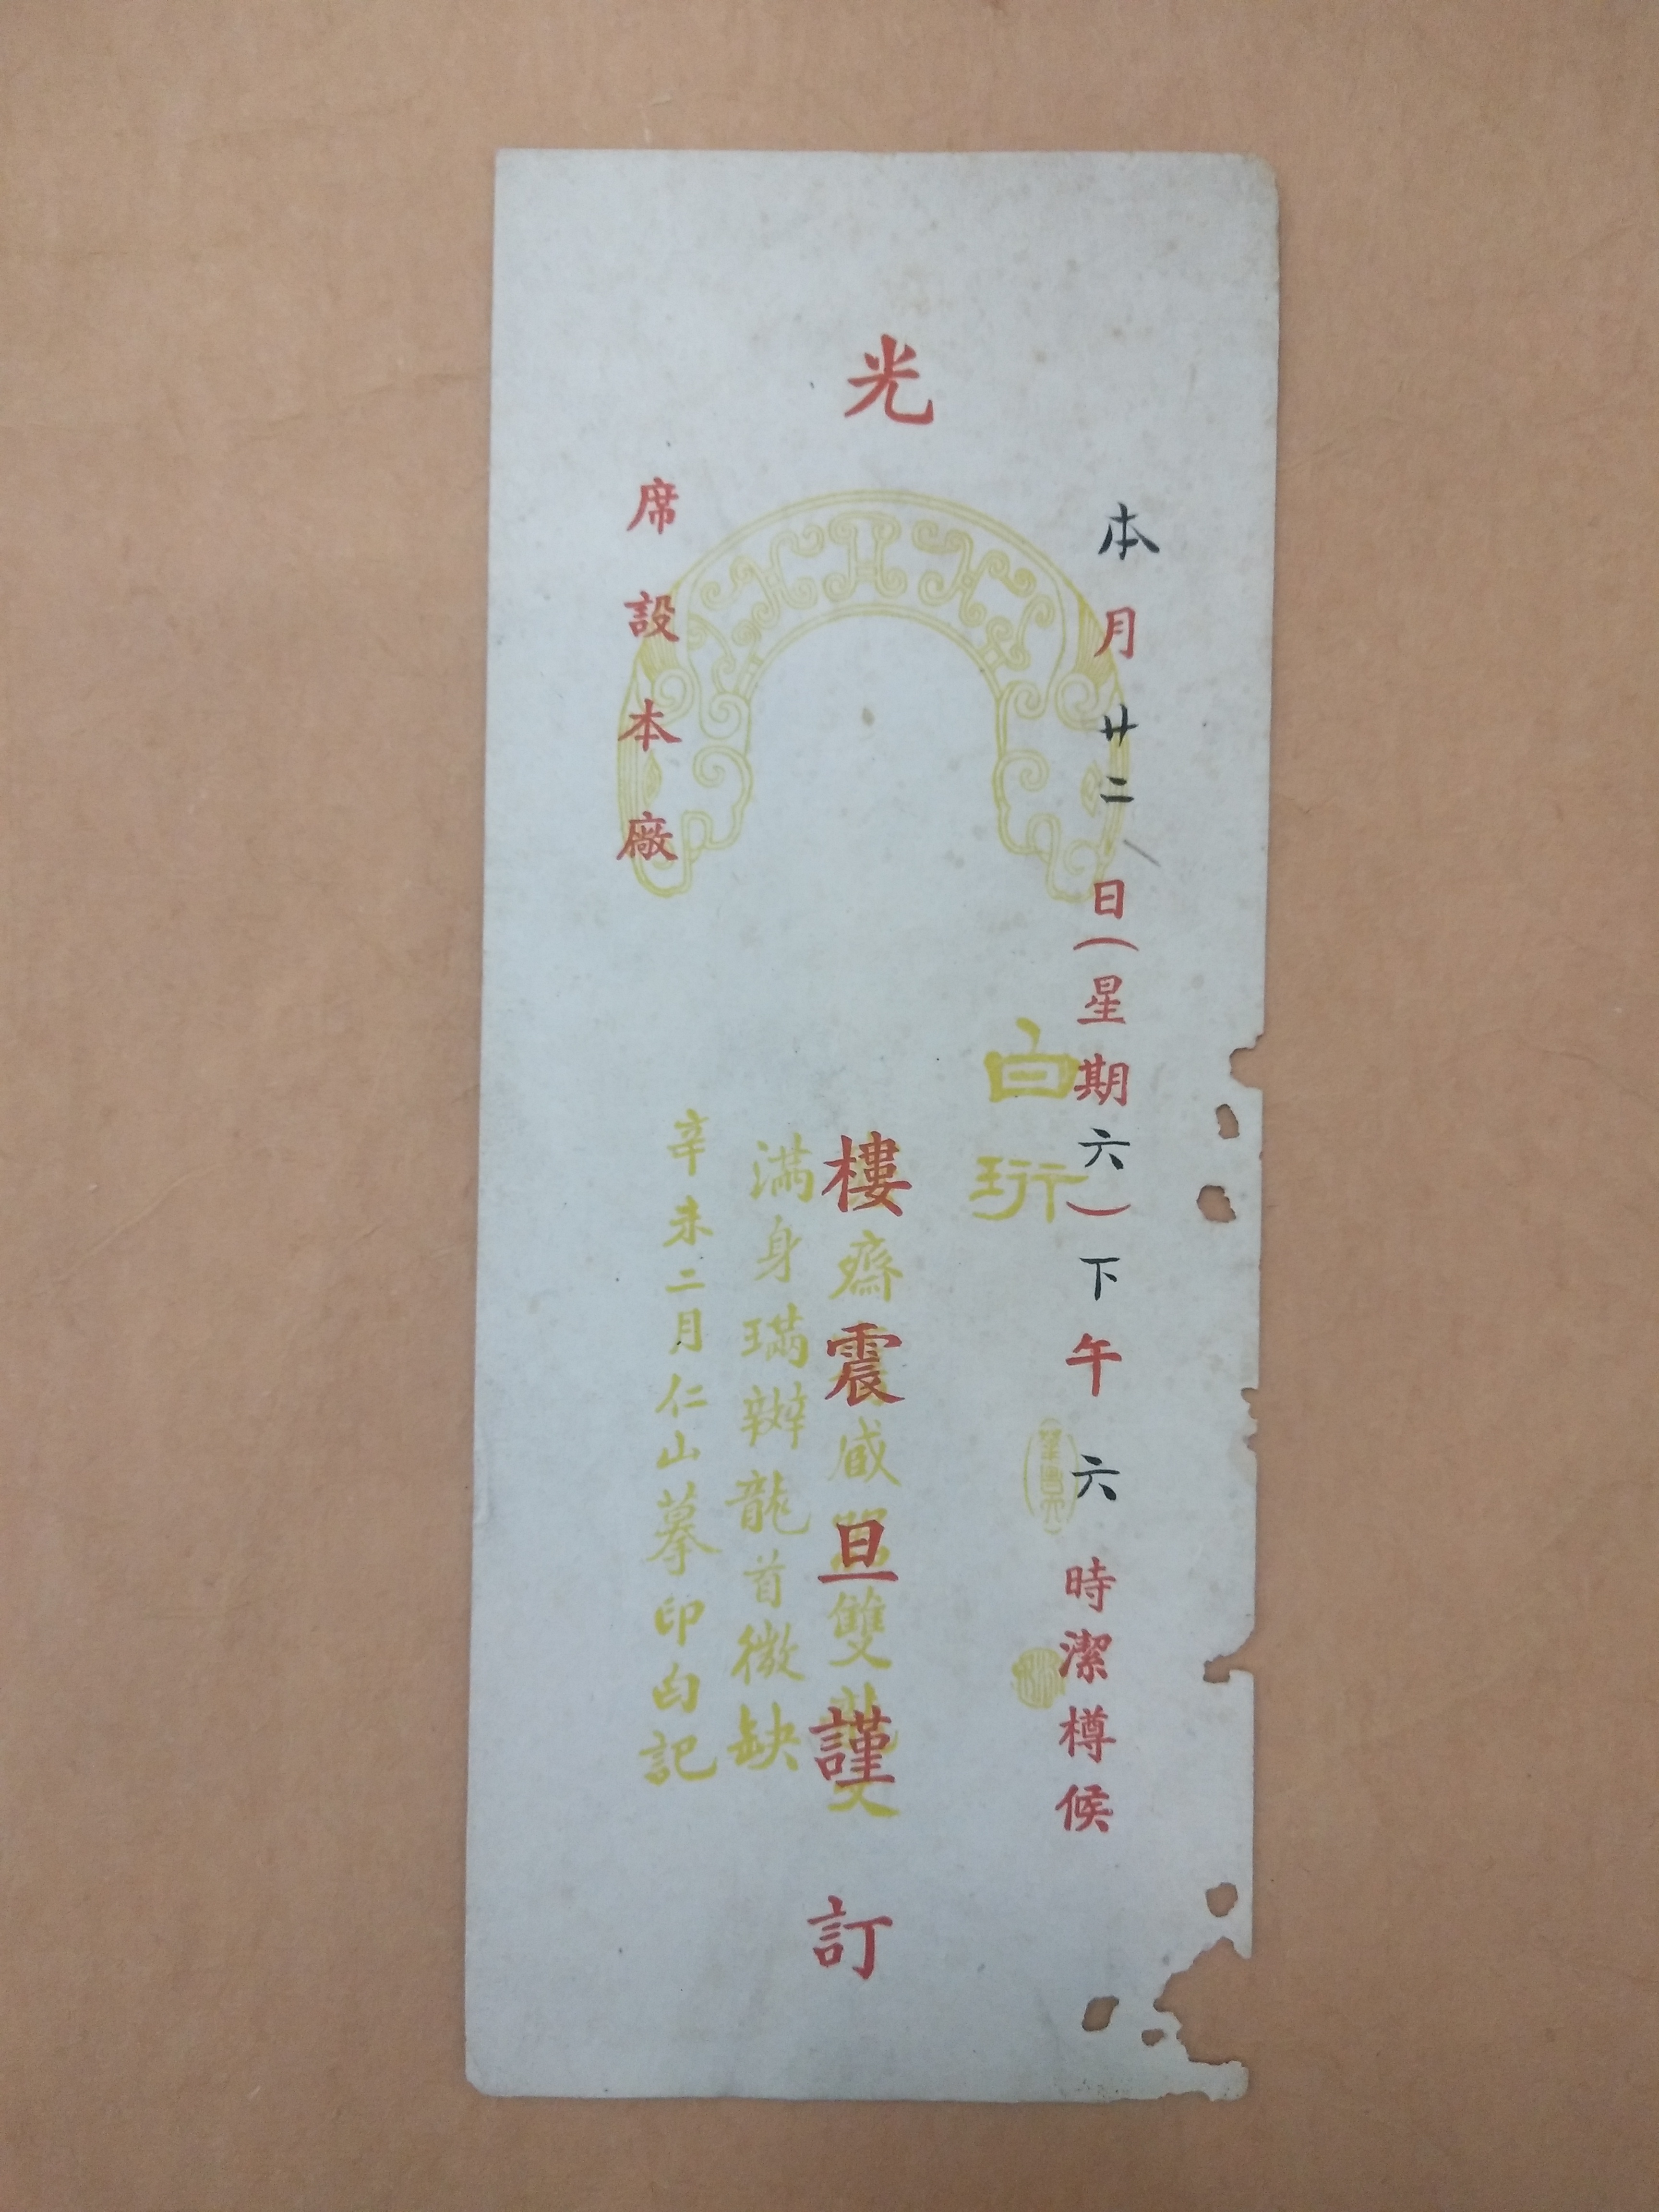 本月廿二日（星期六）下午六時潔樽候
白珩
光
樓震旦謹訂
齋臧雙文
滿身璊辬龍首微缺
辛未二月仁山摹印記
席設本廠